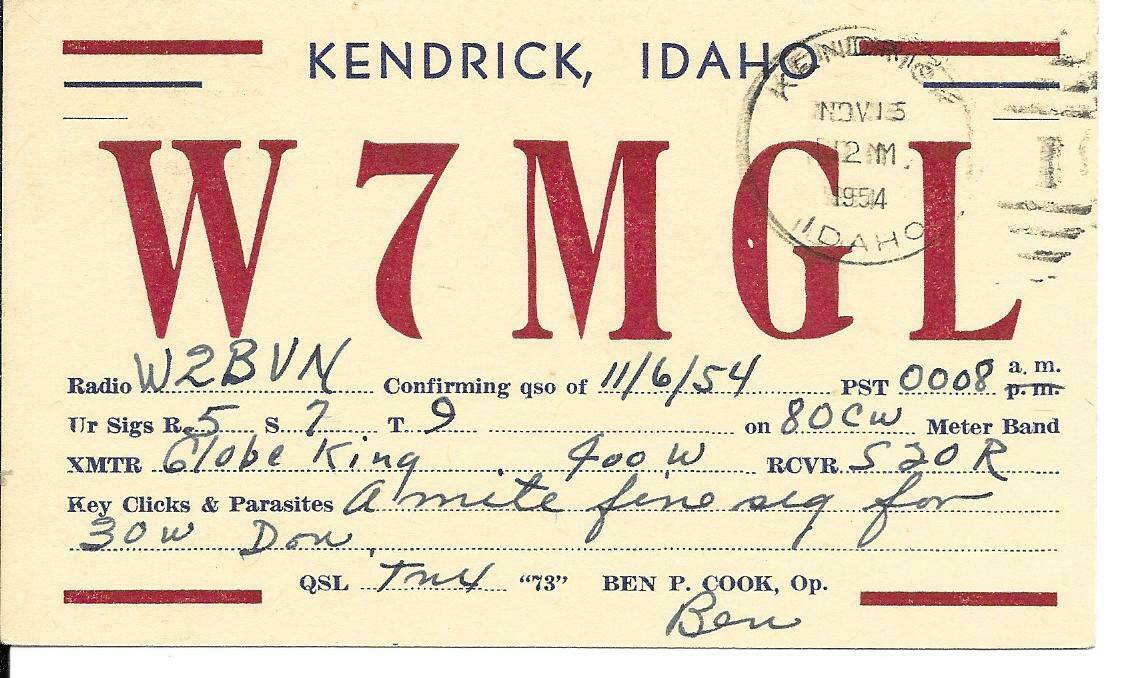 KENDRICK, IDAHO
KENDRICK
NOV 15
12 M
1954
IDAHO
W7MGL
Radio W2BVN Confirming qso of 11/6/54 PST 0008 a. m. p. m.
Ur Sigs R 5 S 7 T 9 on 80 CW Meter Band
XMTR Globe King 400 W RCVR S20R
Key Clicks & Parasites A mite fine sig for
30 W Don.
QSL Tnx "73" BEN P. COOK, Op.
Ben